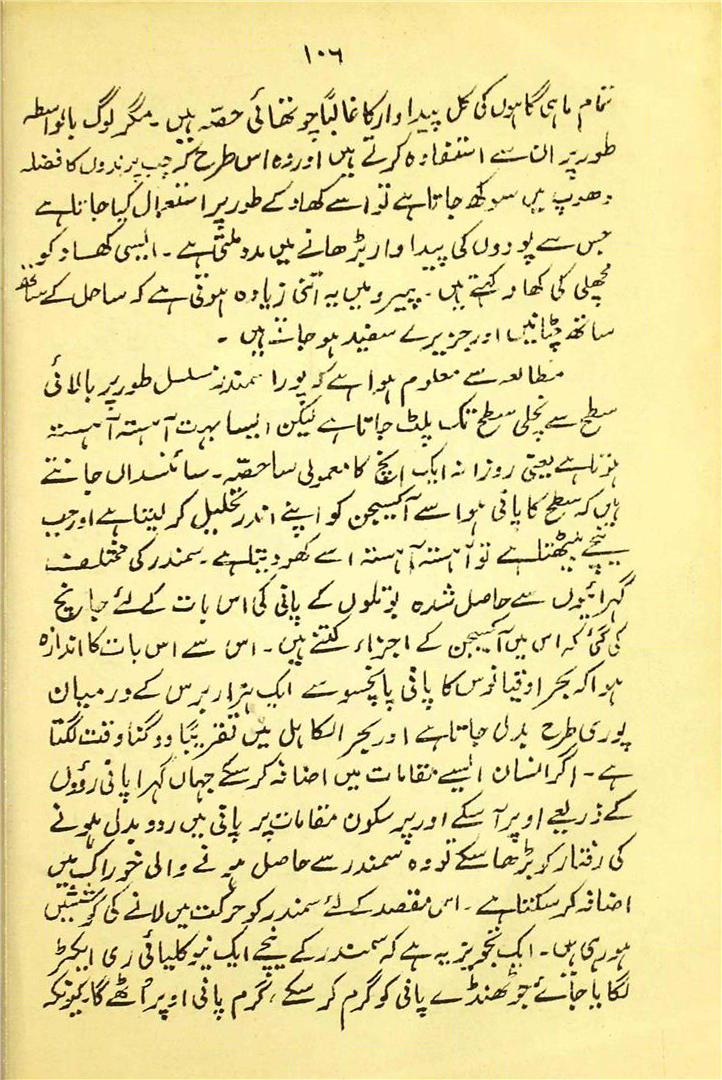 ۱۰۶
تمام ماہی گاہوں کی کل پیداوار کا غالباً چوتھائی حصّہ ہیں۔ مگر لوگ بالواسطہ
طور پر ان سے استفادہ کرتے ہیں اور وہ اس طرح کہ جب پرندوں کا فضلہ
دھوپ میں سوکھ جاتا ہے تو اسے کھاد کے طور پر استعمال کیا جاتا ہے
جس سے پودوں کی پیداوار بڑھانے میں مدد ملتی ہے۔ ایسی کھاد کو
مچھلی کی کھاد کہتے ہیں۔ پیرو میں یہ اتنی زیادہ ہوتی ہے کہ ساحل کے ساتھ
ساتھ چٹانیں اور جزیرے سفید ہو جاتے ہیں۔
مطالعہ سے معلوم ہوا ہے کہ پورا سمندر مسلسل طور پر بالائی
سطح سے نچلی سطح تک پلٹ جاتا ہے لیکن ایسا بہت آہستہ آہستہ
ہوتا ہے یعنی روزانہ ایک انچ کا معمولی سا حصّہ۔ سائنسداں جانتے
ہیں کہ سطح کا پانی ہوا سے آکسیجن کو اپنے اندر تحلیل کر لیتا ہے اور جب
نیچے بیٹھتا ہے تو آہستہ آہستہ اسے کھو دیتا ہے۔ سمندر کی مختلف
گہرائیوں سے حاصل شدہ بوتلوں کے پانی کی اس بات کے لئے جانچ
کی گئی کہ اس میں آکسیجن کے اجزاء کتنے ہیں۔ اس سے اس بات کا اندازہ
ہوا کہ بحر اوقیانوس کا پانی پانچسو سے ایک ہزار برس کے درمیان
پوری طرح بدل جاتا ہے اور بحر الکاہل میں تقریباً دوگنا وقت لگتا
ہے۔ اگر انسان ایسے مقامات میں اضافہ کر سکے جہاں گہرا پانی رؤوں
کے ذریعے اوپر آ سکے اور پر سکون مقامات پر پانی میں ردو بدل ہونے
کی رفتار کو بڑھا سکے تو وہ سمندر سے حاصل ہونے والی خوراک میں
اضافہ کر سکتا ہے۔ اس مقصد کے لئے سمندر کو حرکت میں لانے کی کوششیں
ہو رہی ہیں۔ ایک تجویز یہ ہے کہ سمندر کے نیچے ایک نیوکلیائی ری ایکٹر
لگایا جائے جو ٹھنڈے پانی کو گرم کر سکے، گرم پانی اوپر اُٹھے گا کیونکہ